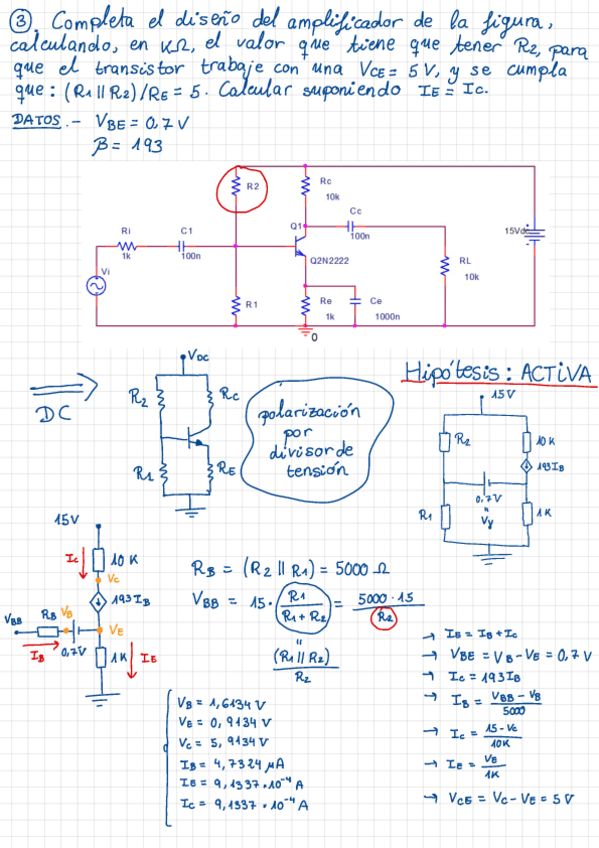 ③ Completa el diseño del amplificador de la figura,
calculando, en KΩ, el valor que tiene que tener R2, para
que el transistor trabaje con una VCE = 5 V, y se cumpla
que: (R1 || R2)/RE = 5. Calcular suponiendo IE = IC.
DATOS.- VBE = 0,7 V
β = 193
R2
Rc
10k
Ri
1k
C1
100n
Q1
Cc
100n
Q2N2222
15Vdc
RL
10k
Vi
R1
Re
1k
Ce
1000n
0
DC
VDC
R2
RC
R1
RE
polarización
por
divisor de
tensión
Hipótesis: ACTIVA
15V
R2
10K
193IB
0,7V
"
Vγ
R1
1K
15V
IC
10K
VC
193IB
VBB
RB
VB
VE
IB
0,7V
1K
IE
RB = (R2 || R1) = 5000 Ω
VBB = 15 · R1/(R1 + R2) = 5000 · 15/R2
"
(R1 || R2)/R2
VB = 1,6134 V
VE = 0,9134 V
VC = 5,9134 V
IB = 4,7324 μA
IE = 9,1337 · 10⁻⁴ A
IC = 9,1337 · 10⁻⁴ A
→ IE = IB + IC
→ VBE = VB - VE = 0,7 V
→ IC = 193IB
→ IB = (VBB - VB)/5000
→ IC = (15 - VC)/10K
→ IE = VE/1K
→ VCE = VC - VE = 5 V